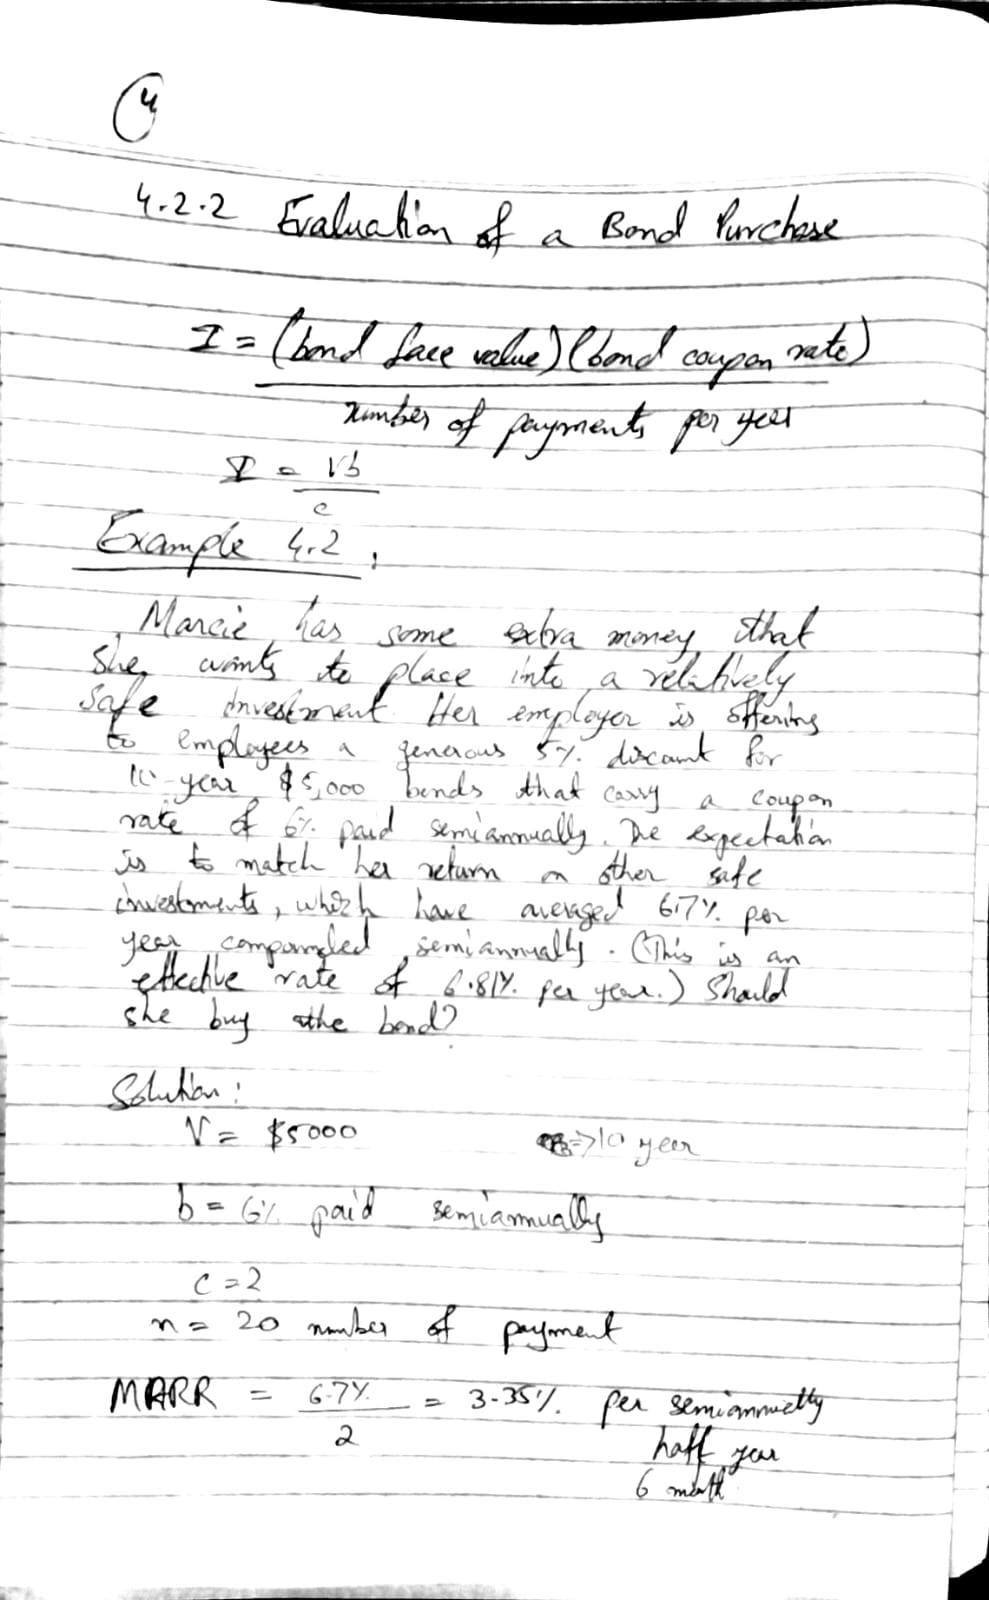 4
4.2.2 Evaluation of a Bond Purchase
I = (bond face value) (bond coupon rate)
number of payments per year
I = Vb
c
Example 4.2
Marcie has some extra money that
she wants to place into a relatively
safe investment. Her employer is offering
to employees a generous 5% discount for
10-year $5,000 bonds that carry a coupon
rate of 6% paid semiannually. The expectation
is to match her return on other safe
investments, which have averaged 6.7% per
year compounded semiannually. (This is an
effective rate of 6.81% per year.) Should
she buy the bond?
Solution:
V = $5000 => 10 year
b = 6% paid semiannually
c = 2
n = 20 number of payment
MARR = 6.7% = 3.35% per semiannually
2 half year
6 month